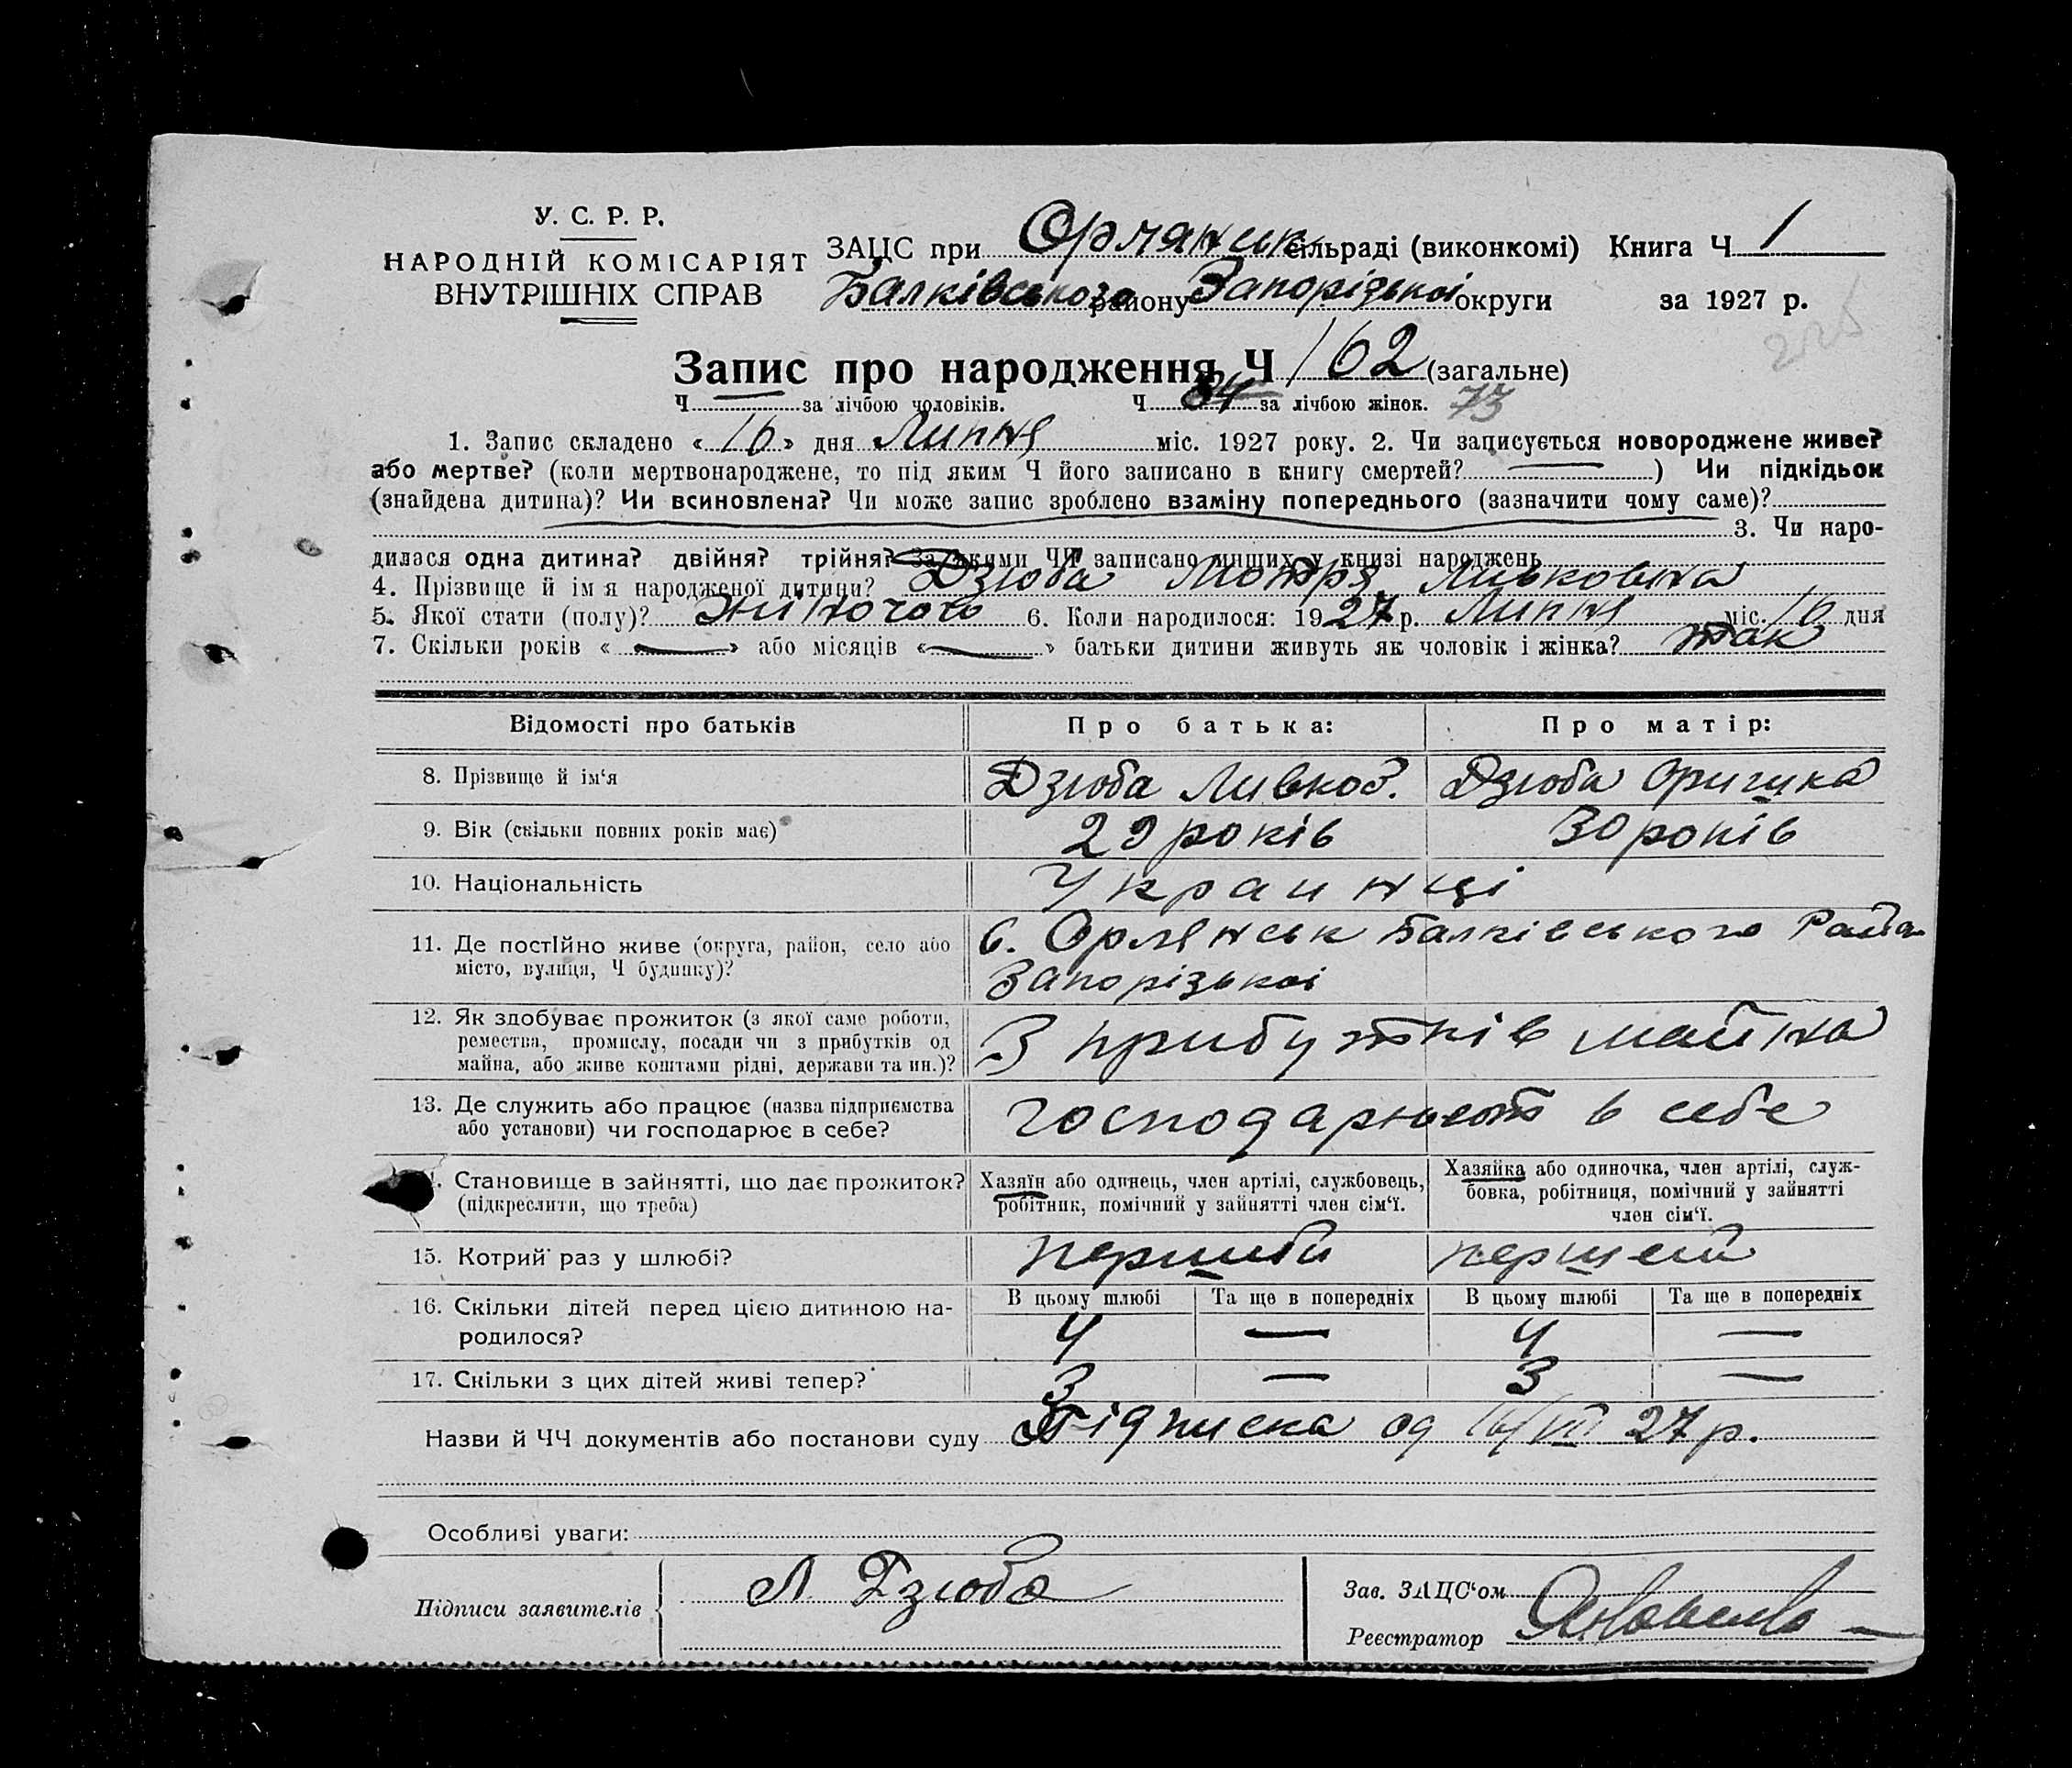 У. С. Р. Р.
НАРОДНІЙ КОМІСАРІЯТ
ВНУТРІШНІХ СПРАВ
ЗАЦС при Орлянськ сільраді (виконкомі) Книга Ч 1
Балківського району Запорізької округи за 1927 р.
225
Запис про народження Ч 162 (загальне)
Ч — за лічбою чоловіків. Ч 84 за лічбою жінок. 73
1. Запис складено « 16 » дня Липня міс. 1927 року. 2. Чи записується новороджене живе?
або мертве? (коли мертвонароджене, то під яким Ч його записано в книгу смертей? — ) Чи підкідьок
(знайдена дитина)? Чи всиновлена? Чи може запис зроблено взаміну попереднього (зазначити чому саме)?
3. Чи наро-
дилася одна дитина? двійня? трійня? За якими ЧЧ записано инших у книзі народжень
4. Прізвище й ім я народженої дитини? Дзюба Мотря Ливковна
5. Якої стати (полу)? жіночого 6. Коли народилося: 1927 р. Липня міс. 16 дня
7. Скільки років « — » або місяців « — » батьки дитини живуть як чоловік і жінка? так
Відомості про батьків Про батька: Про матір:
8. Прізвище й ім‘я Дзюба Ливкоб. Дзюба Оришка
9. Вік (скільки повних років має) 29 років 30 років
10. Національність Украинці
11. Де постійно живе (округа, район, село або місто, вулиця, Ч будинку)? с. Орлянськ Балківського
Запорізькоі
12. Як здобуває прожиток (з якої саме роботи,
ремества, промислу, посади чи з прибутків од
майна, або живе коштами рідні, держави та ин.)? З прибутків майна
13. Де служить або працює (назва підприємства
або установи) чи господарює в себе? господарюють в себе
Становище в зайнятті, що дає прожиток?
(підкреслити, що треба)
Хазяїн або одинець, член артілі, службовець,
робітник, помічний у зайнятті член сім‘ї.
Хазяйка або одиночка, член артілі, служ-
бовка, робітниця, помічний у зайнятті
член сім‘ї.
15. Котрий раз у шлюбі? перший першей
16. Скільки дітей перед цією дитиною на-
родилося?
В цьому шлюбі Та ще в попередніх В цьому шлюбі Та ще в попередніх
4 — 4 —
17. Скільки з цих дітей живі тепер? 3 — 3 —
Назви й ЧЧ документів або постанови суду Підписка од 16/VII 27 р.
Особливі уваги:
Підписи заявителів Л. Дзюба
Зав. ЗАЦС‘ом
Реєстратор